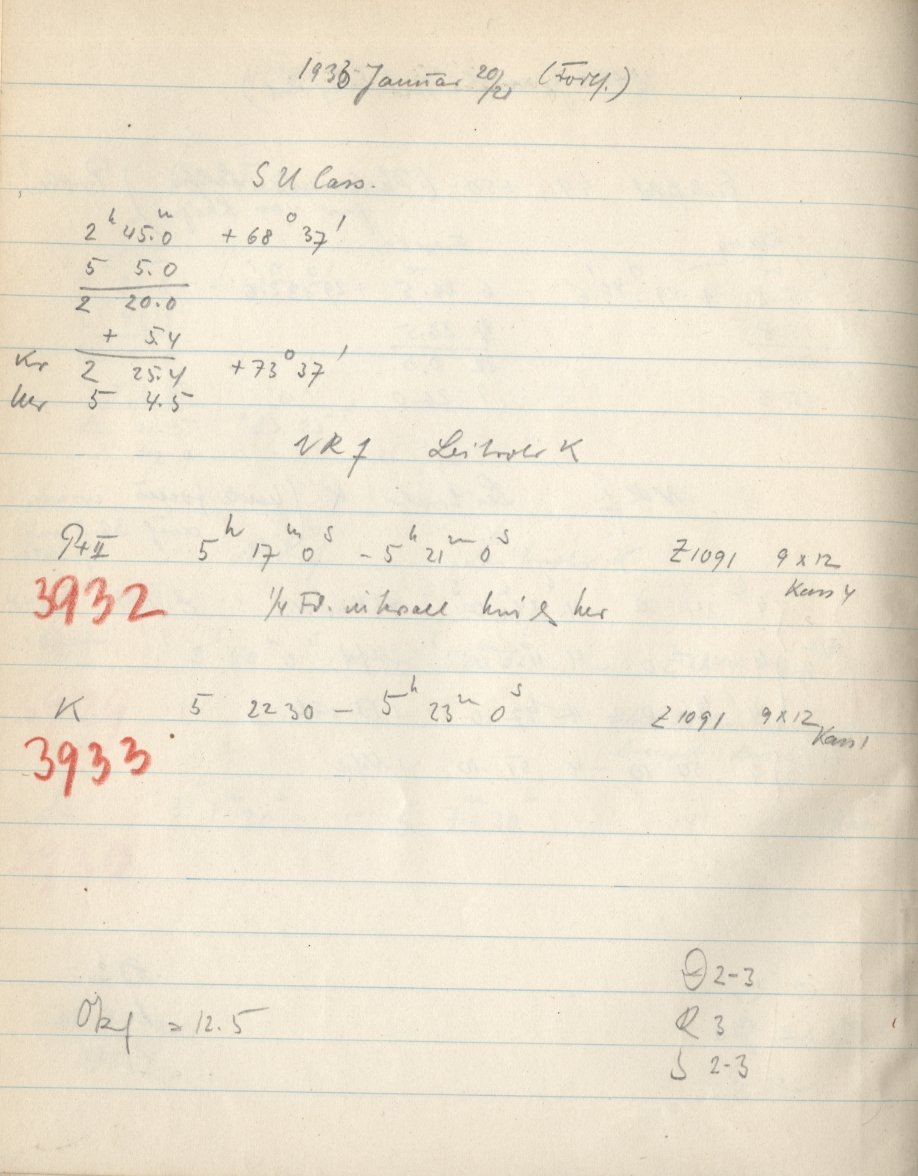 1933 Januar 20/21 (Forts.)
SU Cass.
2ʰ 45ᵐ.0 +68° 37'
5 5.0
2 20.0
+ 5.4
Kr 2 25.4 +73° 37'
her 5 4.5
Leitrohr K
Pr II 5ʰ 17ᵐ 0ˢ – 5ʰ 21ᵐ 0ˢ Z1091 9x12
Kass 4
3932 1/4 Fd. intervall hin & her
K 5 22 30 – 5ʰ 23ᵐ 0ˢ Z1091 9x12
Kass 1
3933
2-3
= 12.5 R 3
S 2-3